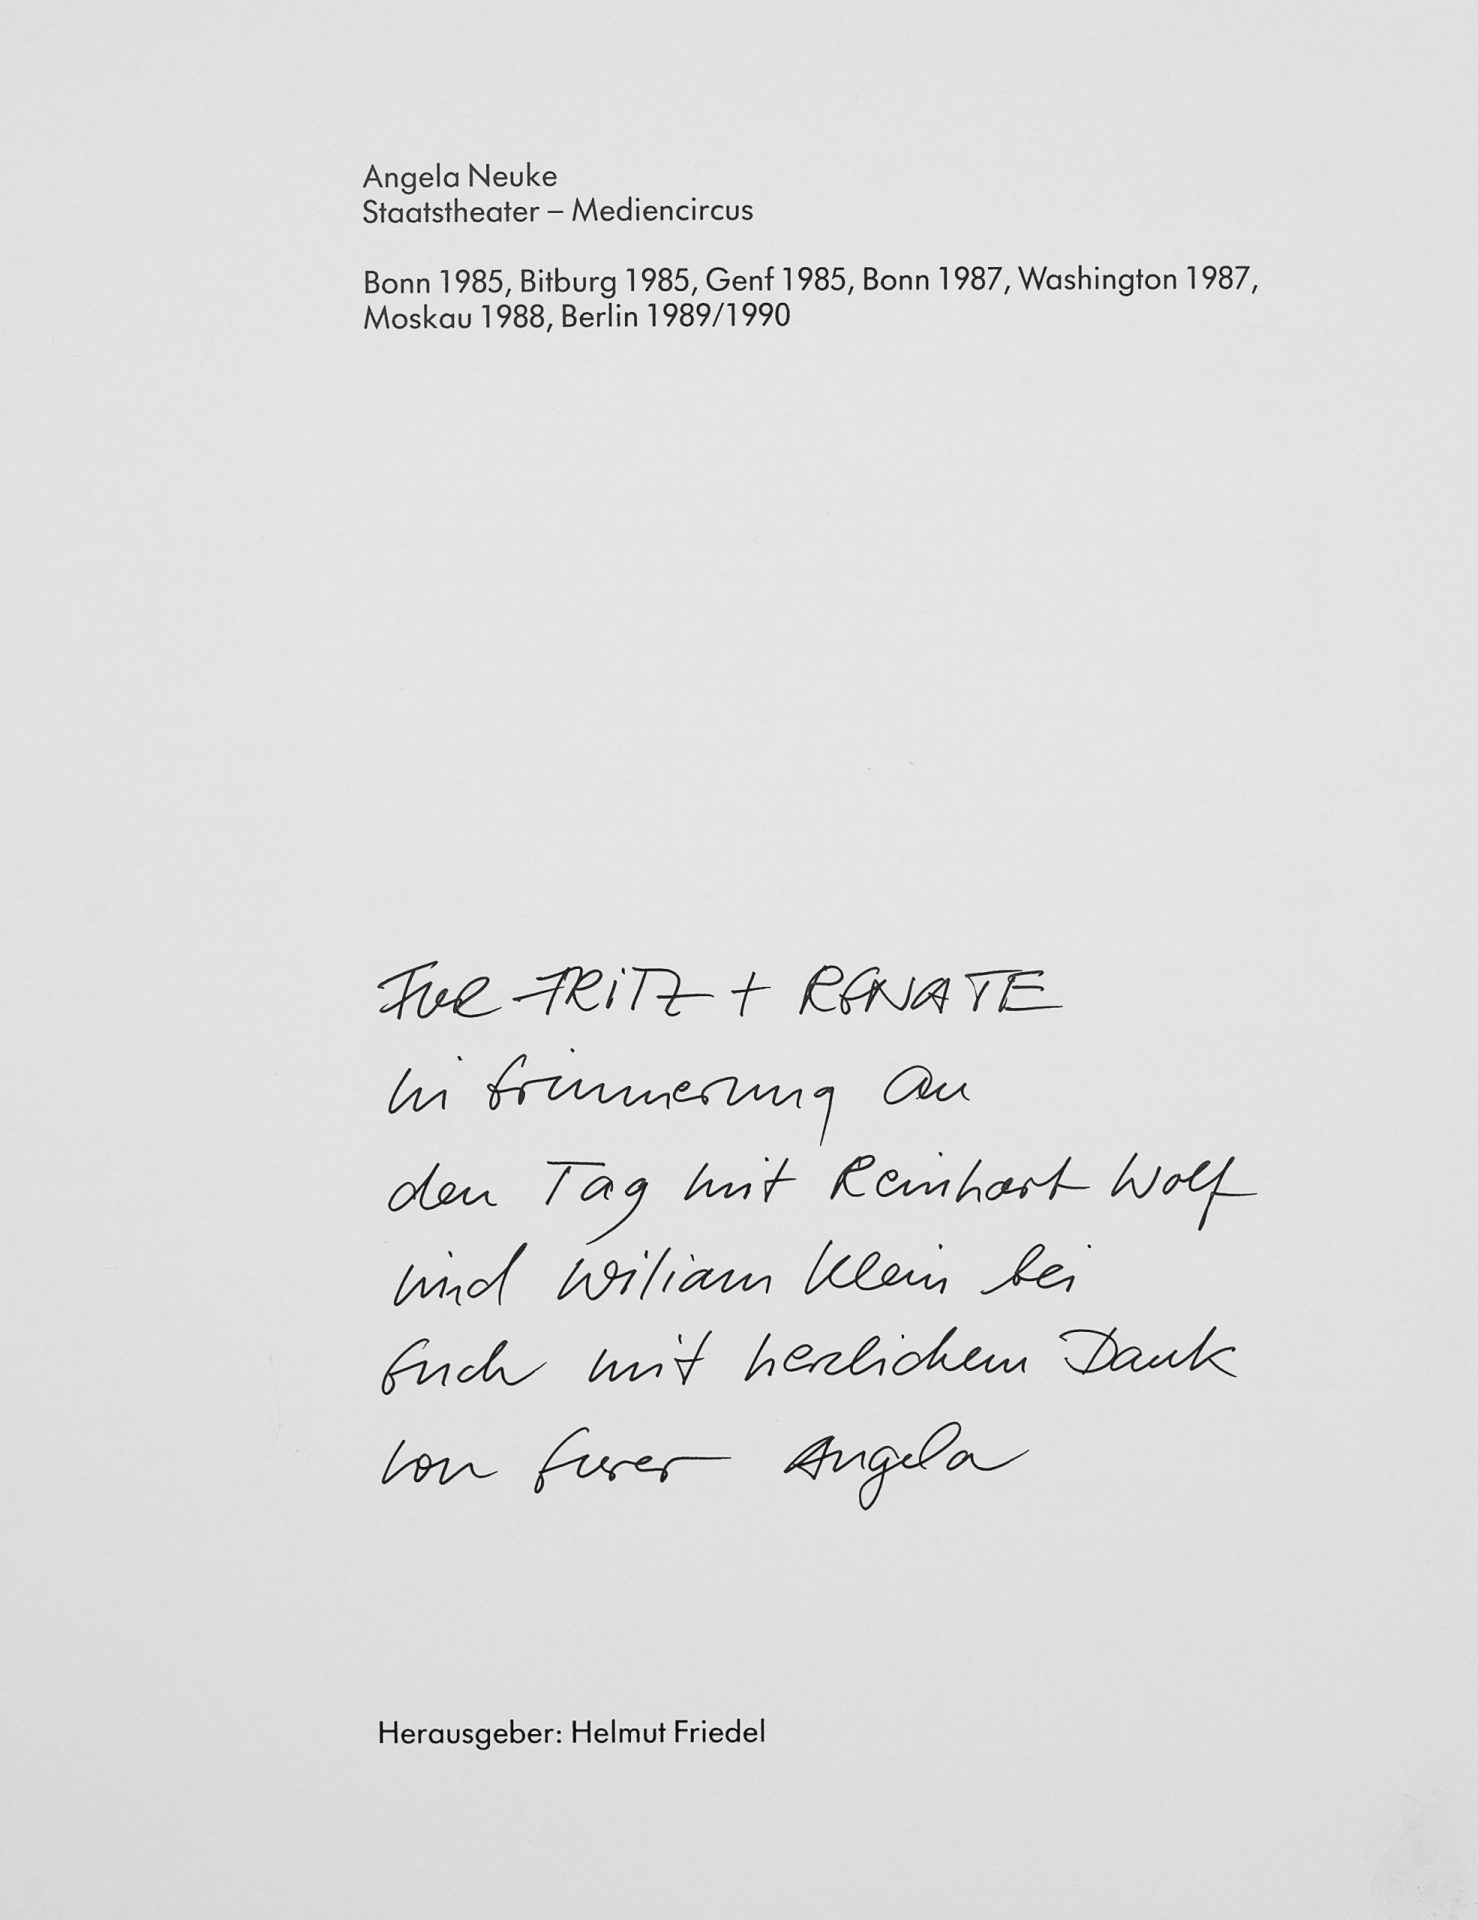 Angela Neuke
Staatstheater – Mediencircus
Bonn 1985, Bitburg 1985, Genf 1985, Bonn 1987, Washington 1987,
Moskau 1988, Berlin 1989/1990
FUR FRiTZ + RENATE
in Erinnerung an
den Tag mit Reinhart Wolf
und Wiliam Klein bei
Euch mit herzlichem Dank
von Eurer Angela
Herausgeber: Helmut Friedel